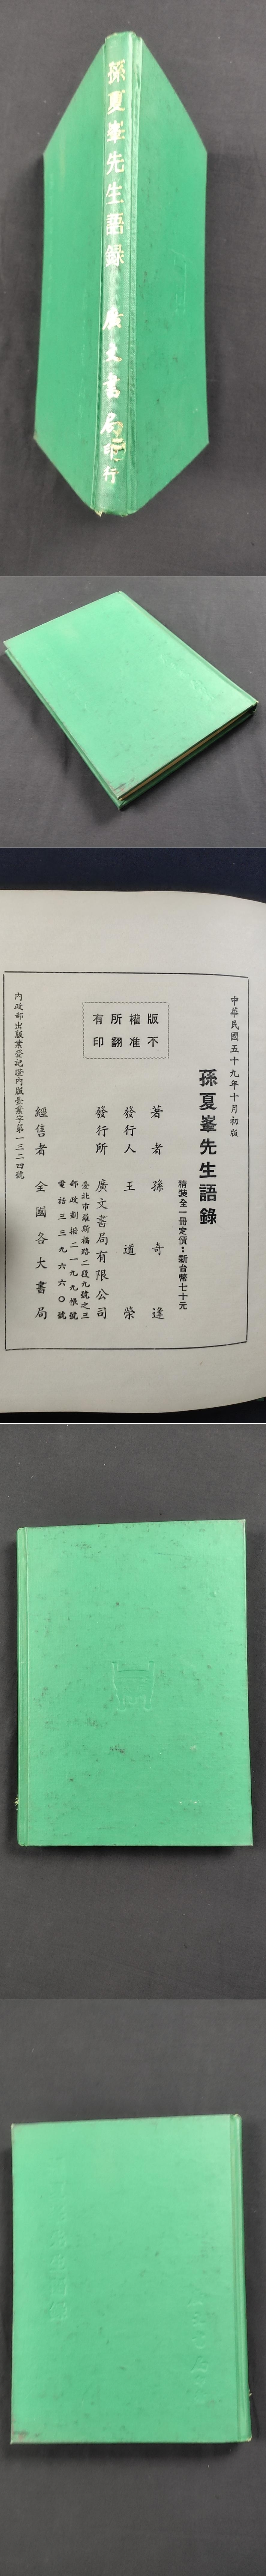 孫夏峯先生語錄 廣文書局印行
中華民國五十九年十月初版
孫夏峯先生語錄
精裝全一冊定價：新台幣七十元
版權所有
不准翻印
著者 孫奇逢
發行人 王道榮
發行所 廣文書局有限公司
臺北市羅斯福路二段九號之三
郵政劃撥二一九九帳號
電話三三九六六〇號
經售者 全國各大書局
內政部出版業登記證內版臺業字第一三二四號